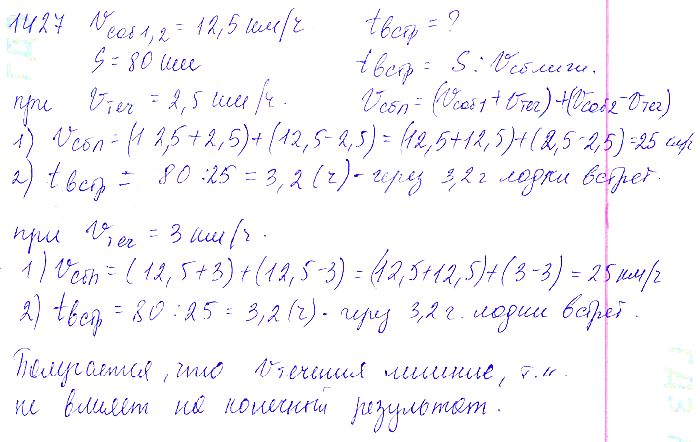 1427 Vсоб1,2 = 12,5 км/ч. tвстр = ?
S = 80 км tвстр = S : Vсближ.
при Vтеч = 2,5 км/ч. Vсбл = (Vсоб1 + Vтеч) + (Vсоб2 - Vтеч)
1) Vсбл = (12,5 + 2,5) + (12,5 - 2,5) = (12,5 + 12,5) + (2,5 - 2,5) = 25 км/ч
2) tвстр = 80 : 25 = 3,2 (ч) - через 3,2 ч лодки встрет.
при Vтеч = 3 км/ч.
1) Vсбл = (12,5 + 3) + (12,5 - 3) = (12,5 + 12,5) + (3 - 3) = 25 км/ч
2) tвстр = 80 : 25 = 3,2 (ч) - через 3,2 ч. лодки встрет.
Получается, что Vтечения лишние, т.к.
не влияет на конечный результат.